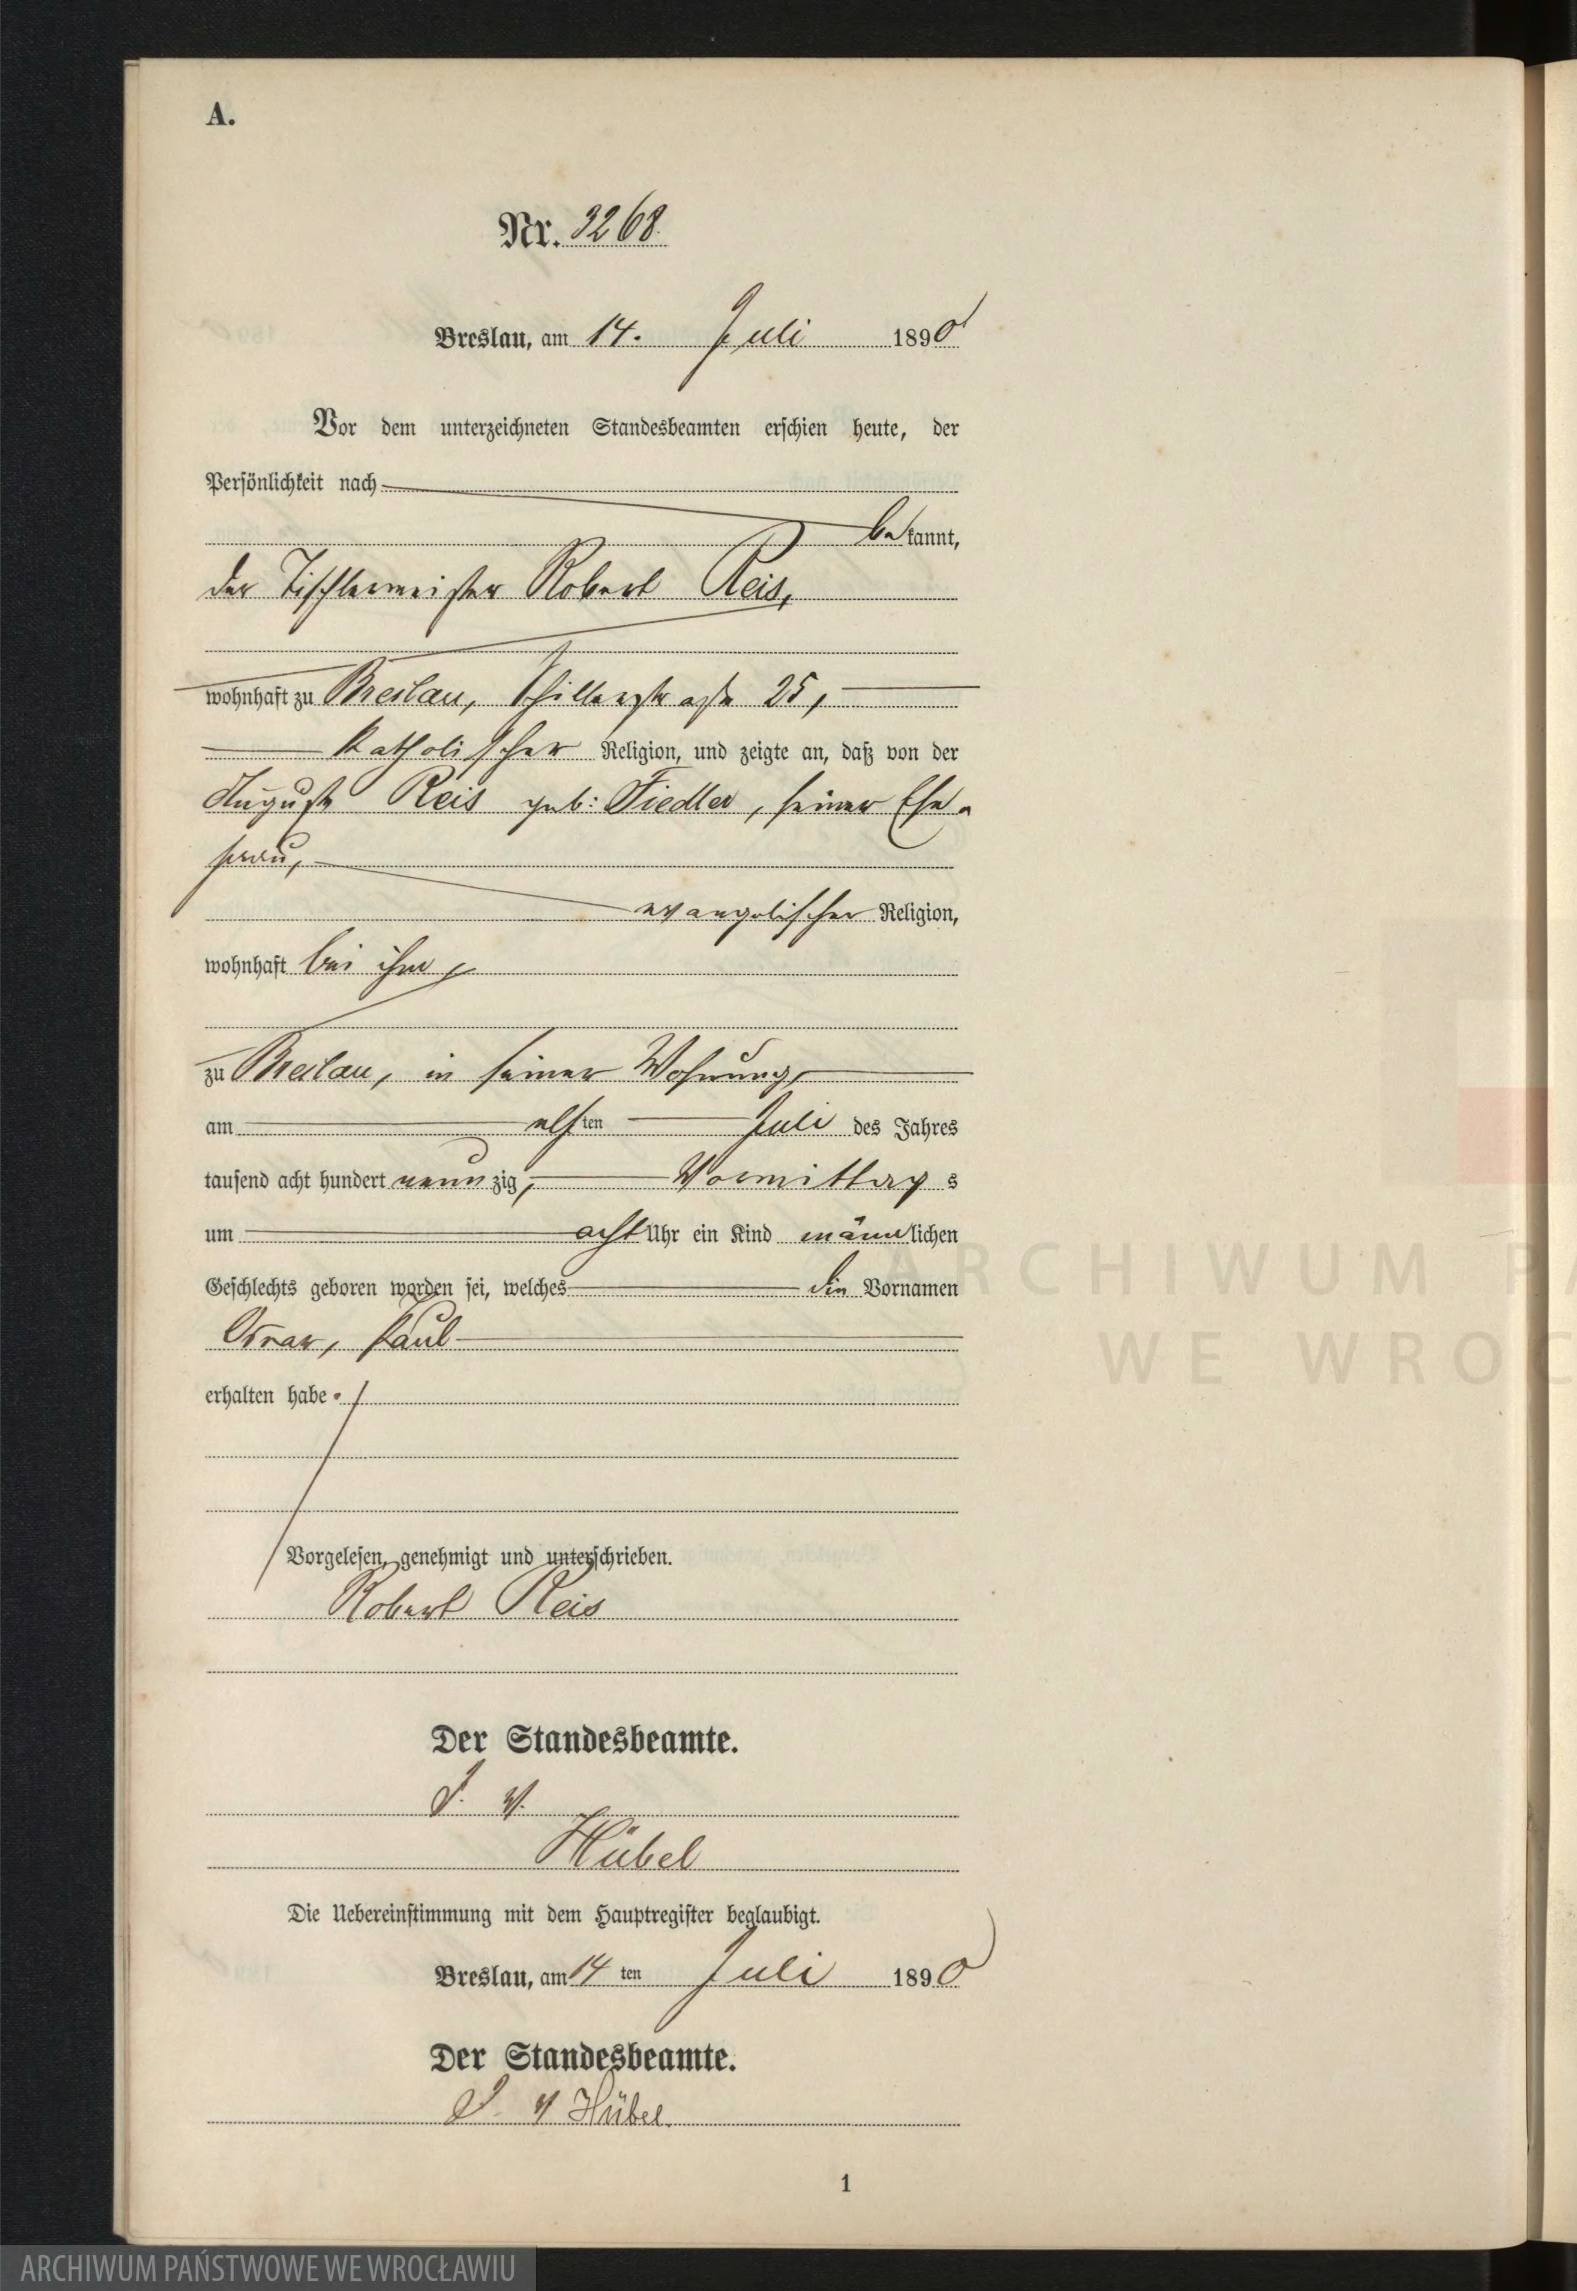 A.
Nr. 3268.
Breslau, am 14. Juli 1890
Vor dem unterzeichneten Standesbeamten erschien heute, der
Persönlichkeit nach
bekannt,
der Tischlermeister Robert Reis,
wohnhaft zu Breslau, Schillerstraße 25,
katholischer Religion, und zeigte an, daß von der
Auguste Reis geb: Fiedler, seiner Ehe-
frau,
evangelischer Religion,
wohnhaft bei ihm,
zu Breslau, in seiner Wohnung,
am elften Juli des Jahres
tausend acht hundert neunzig, Vormittags
um acht Uhr ein Kind männlichen
Geschlechts geboren worden sei, welches die Vornamen
Paul
erhalten habe.
Vorgelesen, genehmigt und unterschrieben.
Robert Reis
Der Standesbeamte.
J. V.
Hübel
Die Uebereinstimmung mit dem Hauptregister beglaubigt.
Breslau, am 14ten Juli 1890
Der Standesbeamte.
J. V Hübel.
1
ARCHIWUM PA
WE WROC
ARCHIWUM PAŃSTWOWE WE WROCŁAWIU